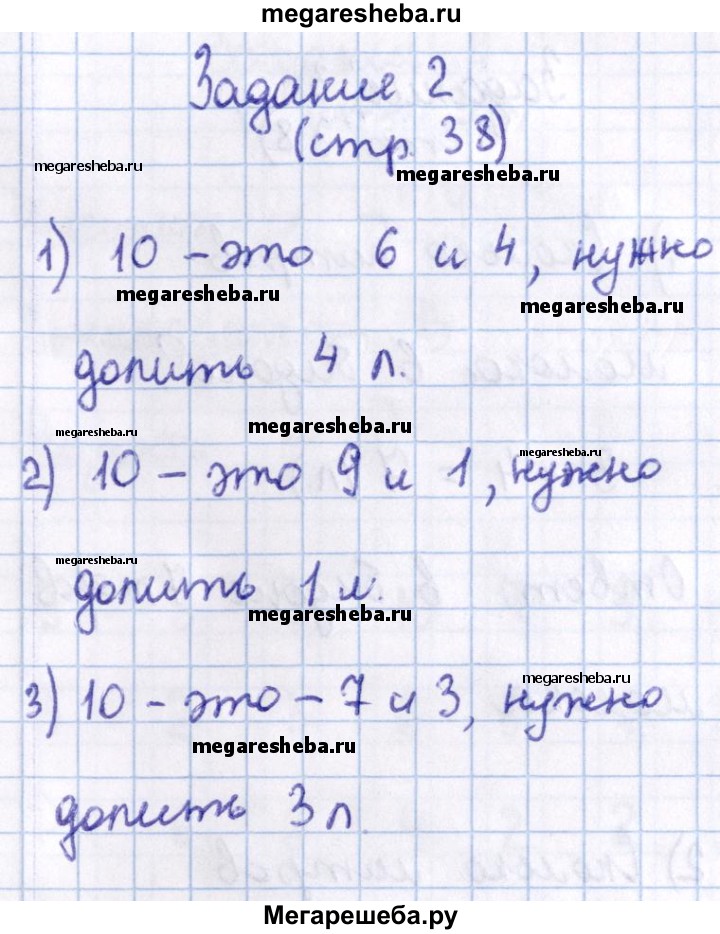 megaresheba.ru
Задание 2
(стр. 38)
megaresheba.ru
megaresheba.ru
1) 10 – это 6 и 4, нужно
megaresheba.ru
megaresheba.ru
допить 4 л.
megaresheba.ru
megaresheba.ru
2) 10 – это 9 и 1, нужно
megaresheba.ru
megaresheba.ru
допить 1 л.
megaresheba.ru
3) 10 – это – 7 и 3, нужно
megaresheba.ru
megaresheba.ru
допить 3 л.
Мегарешеба.ру